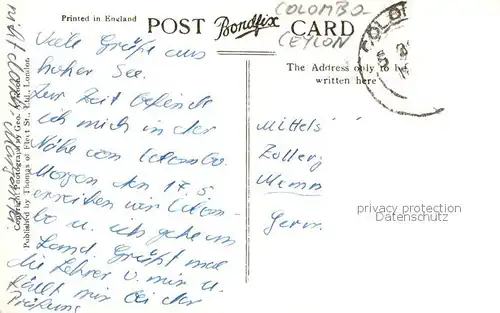 Printed in England
POST Bondfix CARD
COLOMBO
CEYLON
COLO
The Address only to be
written here
Copyright photograph by Geo.
Published by Thomas of Fleet St., E.C., London.
Viele Grüße aus
hoher See.
Zur Zeit befinde
ich mich in der
Nähe von Colombo.
Morgen den 17.5.
erreichen wir Colom-
bo u. ich gehe an
Land. Grüßt mal
die Lehrer v. mir u.
hällt mir bei der
Prüfung
nicht
Mittels
Zollerg
Memm
Germ
privacy protection
Datenschutz